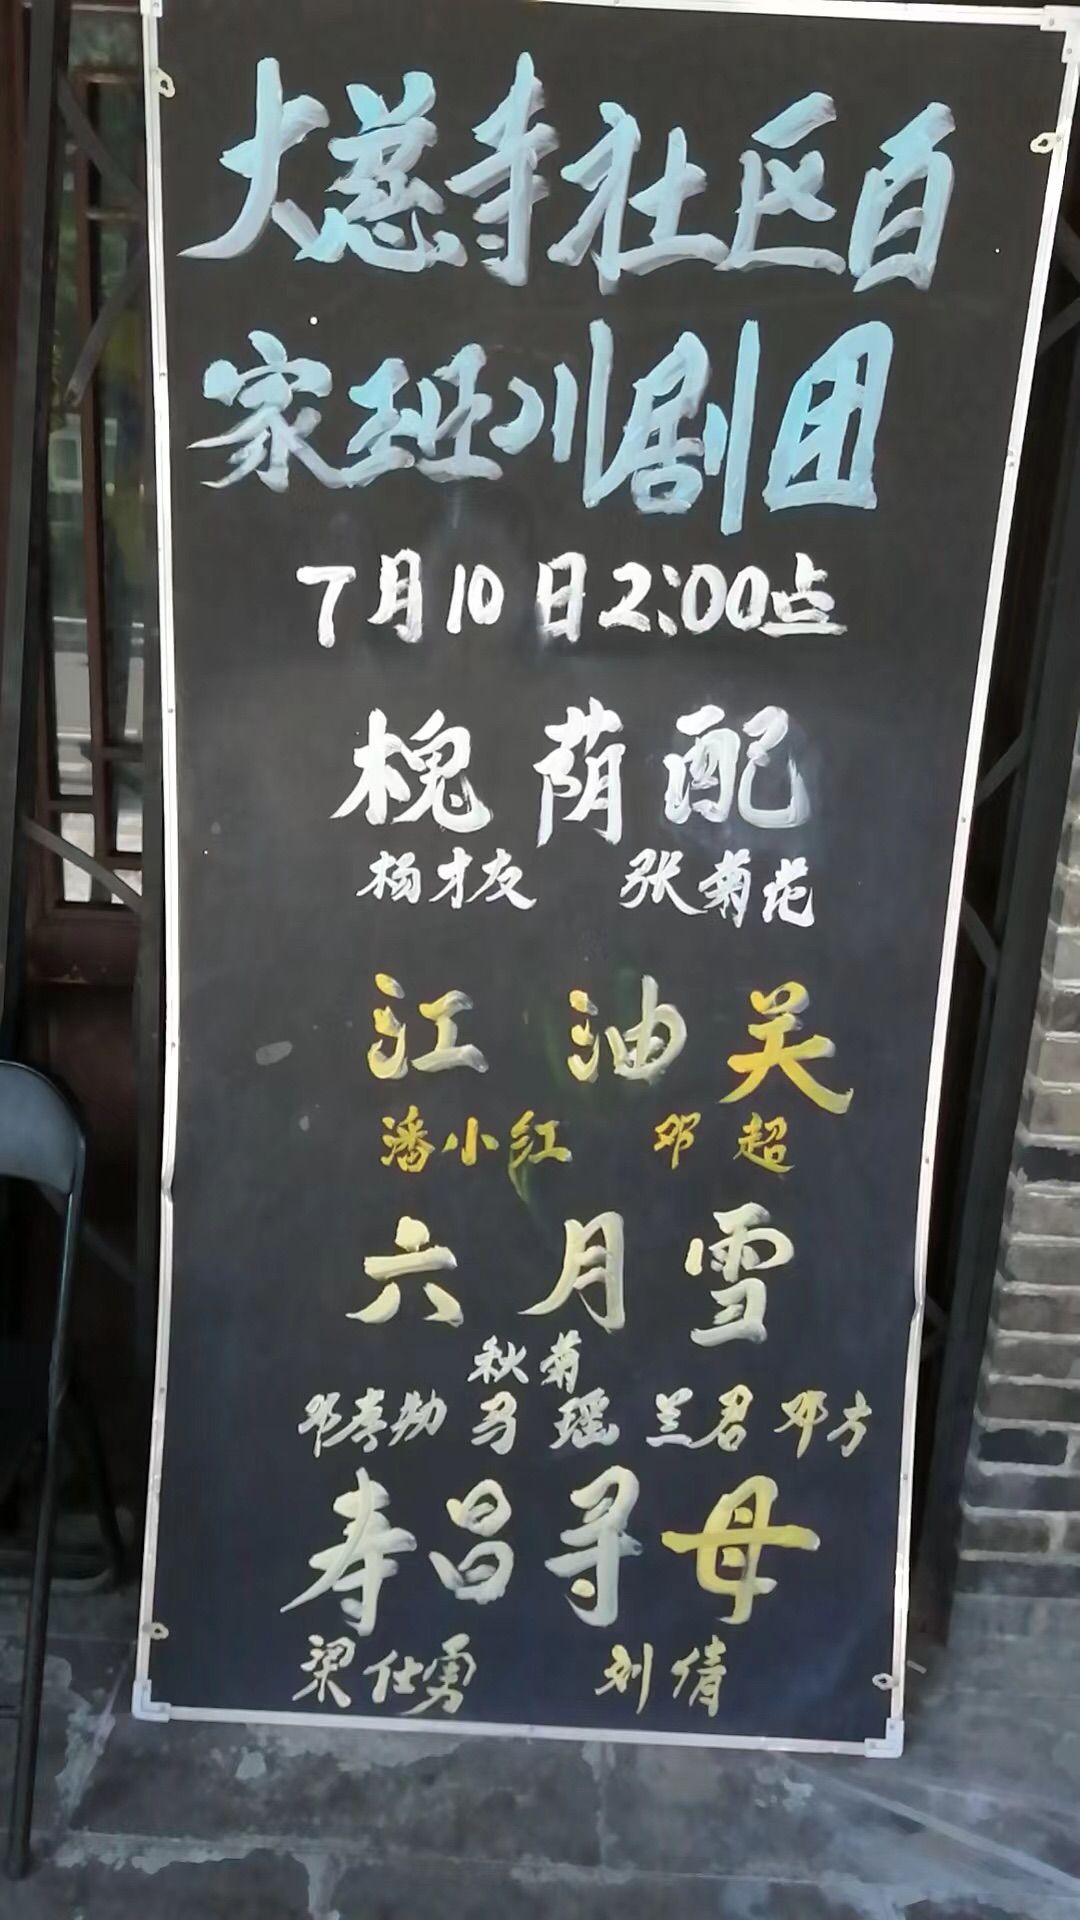 大慈寺社区百
家班川剧团
7月10日2:00点
槐荫配
杨才友 张菊花
江油关
潘小红 邓超
六月雪
秋菊
邓孝勋 马瑶 兰君 邓方
寿昌寻母
梁仕勇 刘倩